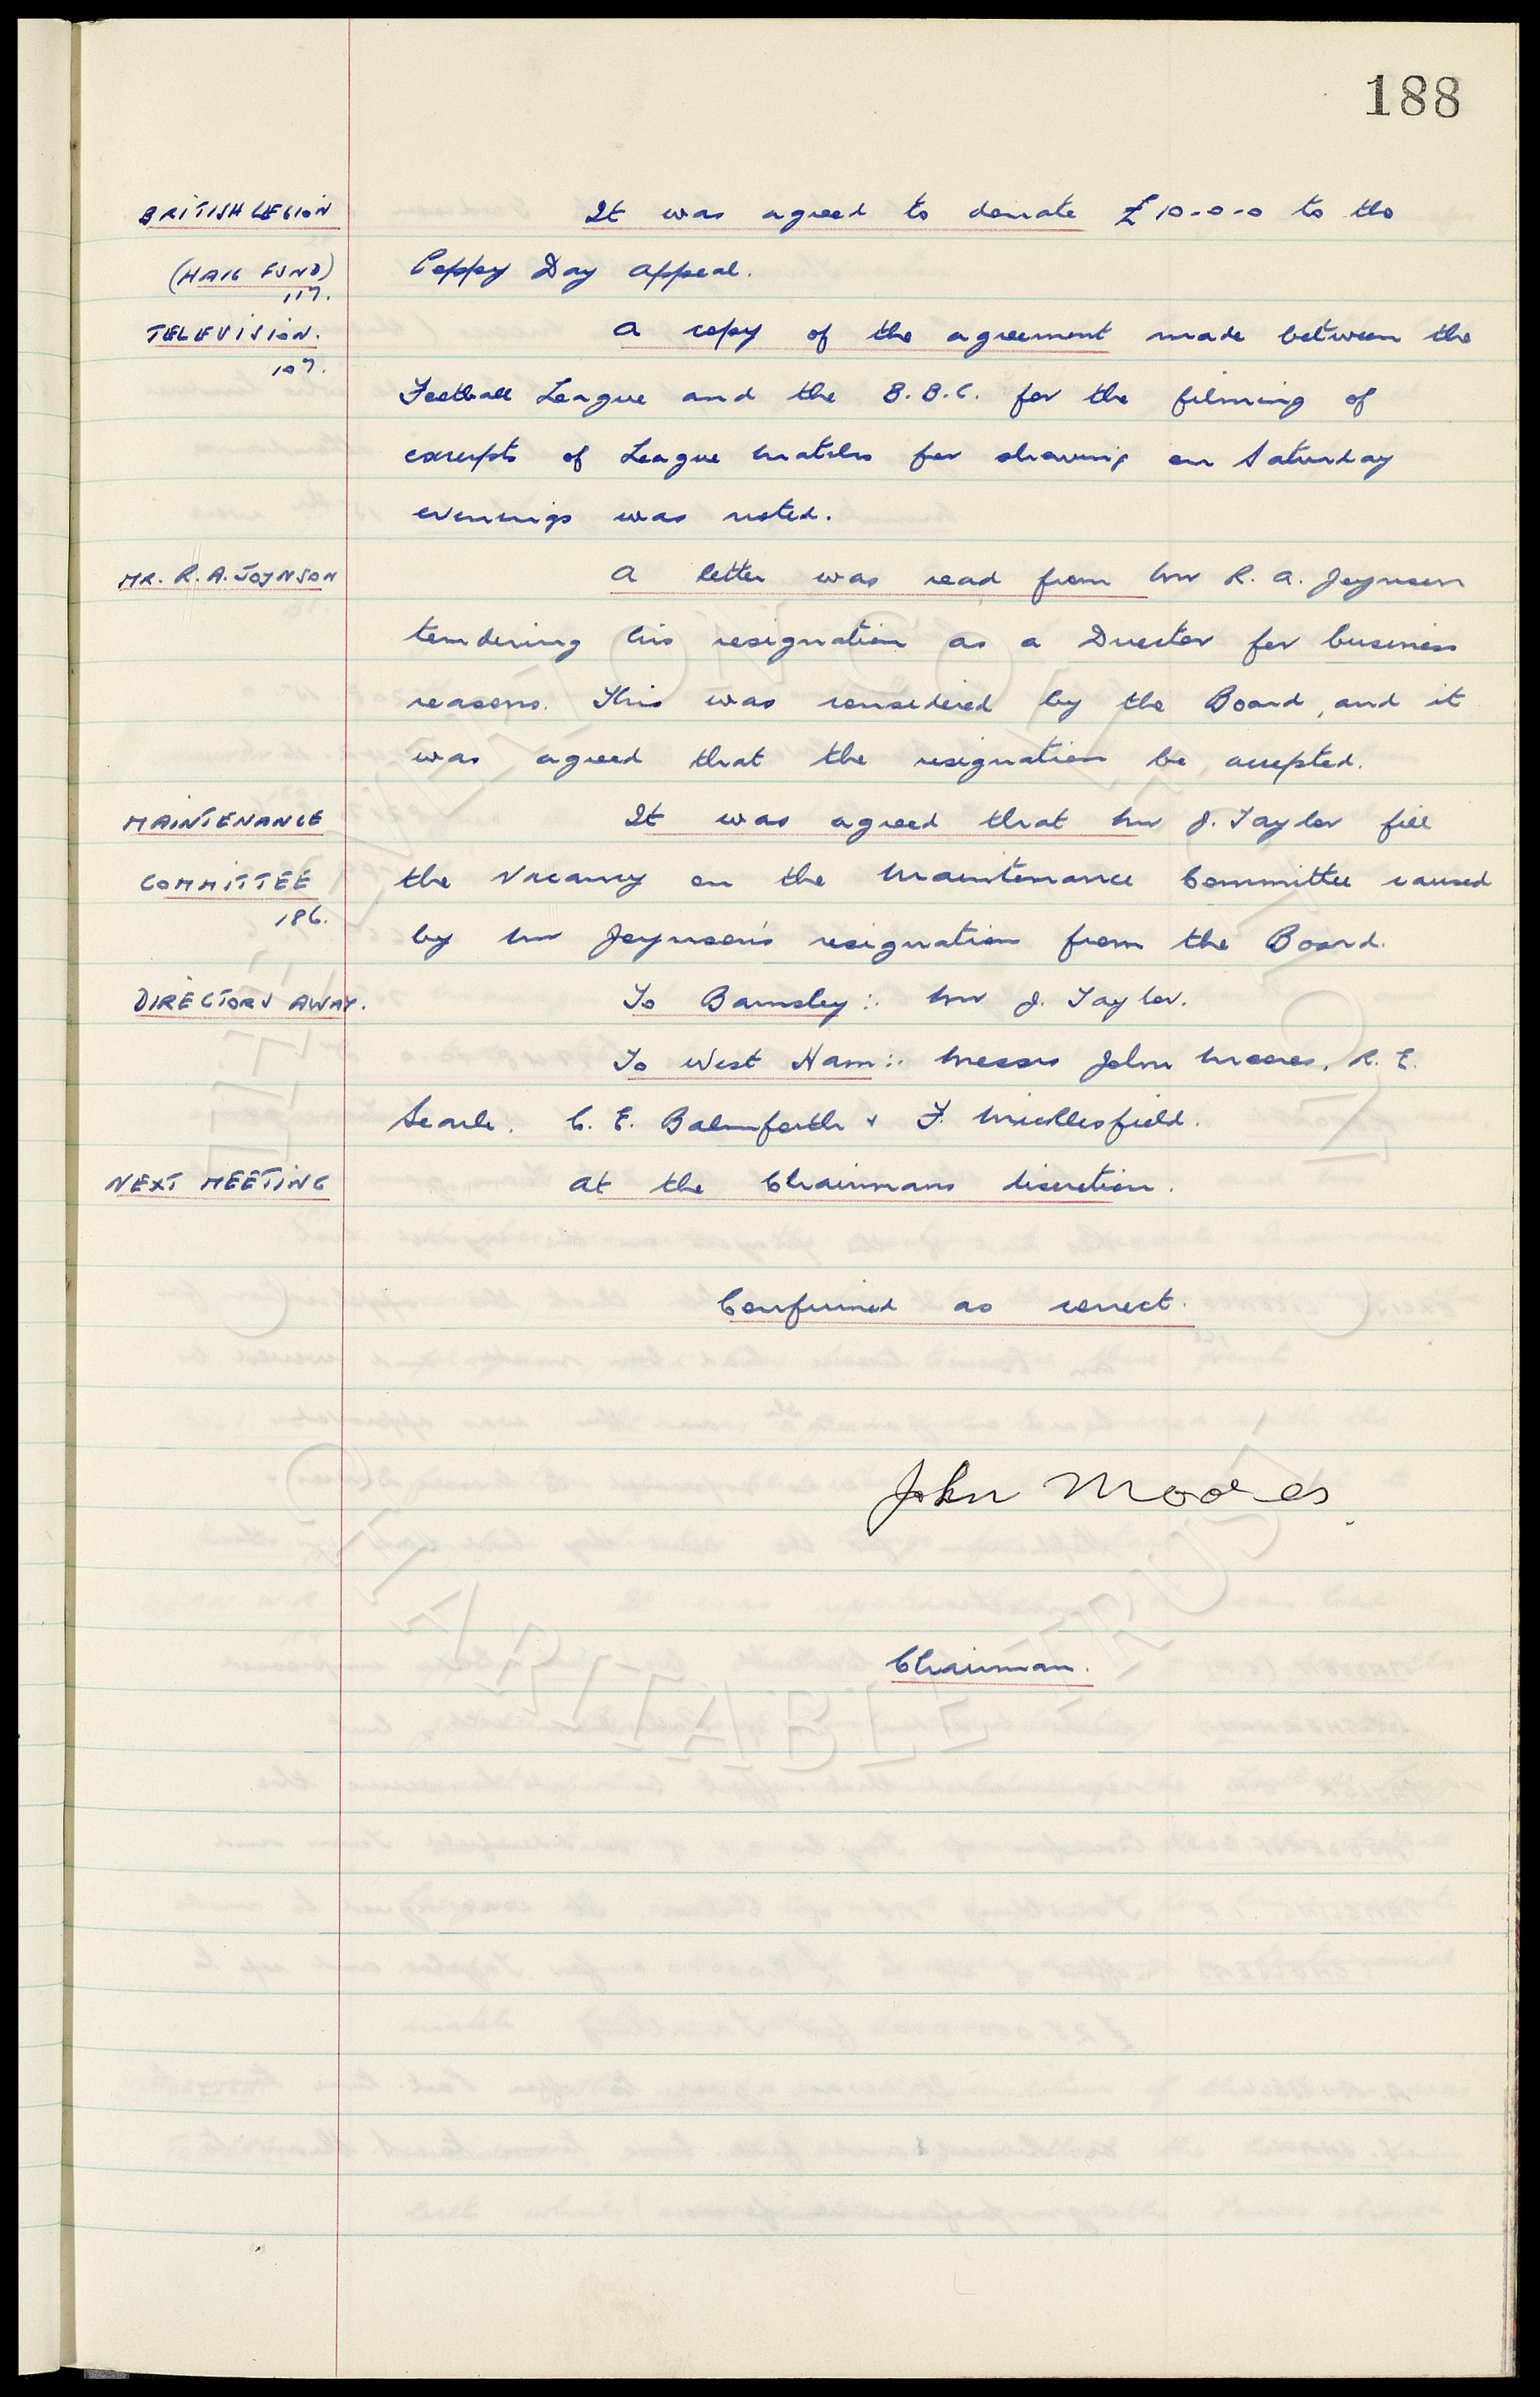 188
BRITISH LEGION It was agreed to donate £10-0-0 to the
(HAIG FUND) Poppy Day Appeal.
117.
TELEVISION. A copy of the agreement made between the
107.
Football League and the B.B.C. for the filming of
excerpts of League matches for showing on Saturday
evenings was noted.
MR. R.A. JOYNSON A letter was read from Mr R. A. Joynson
tendering his resignation as a Director for business
reasons. This was considered by the Board, and it
was agreed that the resignation be accepted.
MAINTENANCE It was agreed that Mr J. Taylor fill
COMMITTEE the vacancy on the Maintenance Committee caused
186.
by Mr Joynson's resignation from the Board.
DIRECTORS AWAY. To Barnsley:. Mr J. Taylor.
To West Ham:. Messrs John Moores, R. E.
Searle. C. E. Balmforth & F. Micklesfield.
NEXT MEETING At the Chairmans discretion.
Confirmed as correct.
John Moores.
Chairman.